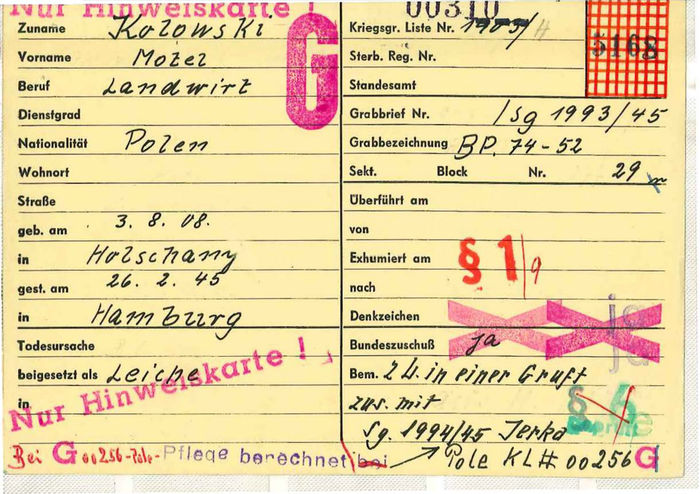 Nur Hinweiskarte !
00310
Zuname Kolowski
Vorname Motel
Beruf Landwirt
Dienstgrad
Nationalität Polen
Wohnort
Straße
geb. am 3. 8. 08.
in Holschany
gest. am 26. 2. 45
in Hamburg
Todesursache
beigesetzt als Leiche
in
Nur Hinweiskarte !
Bei G 00256-Pole- Pflege berechnet bei
G
Kriegsgr. Liste Nr. 1905/H
5168
Sterb. Reg. Nr.
Standesamt
Grabbrief Nr. /Sg 1993/45
Grabbezeichnung BP. 74-52
Sekt. Block Nr. 29
Überführt am
von
Exhumiert am § 1/9
nach
Denkzeichen ja
Bundeszuschuß ja ja
Bem. 2 L. in einer Gruft
zus. mit § 6
Sg. 1994/45 Jerka
Pole KL# 00256 G